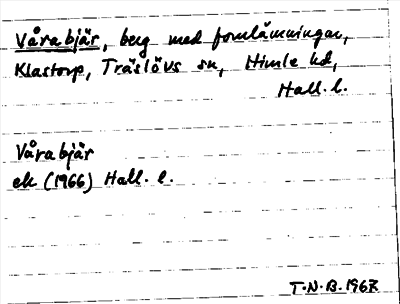 Våra bjär, berg med fornlämningar,
Klastorp, Träslövs sn, Himle hd,
Hall. l.
Våra bjär
ek (1966) Hall. l.
T.N.B. 1968